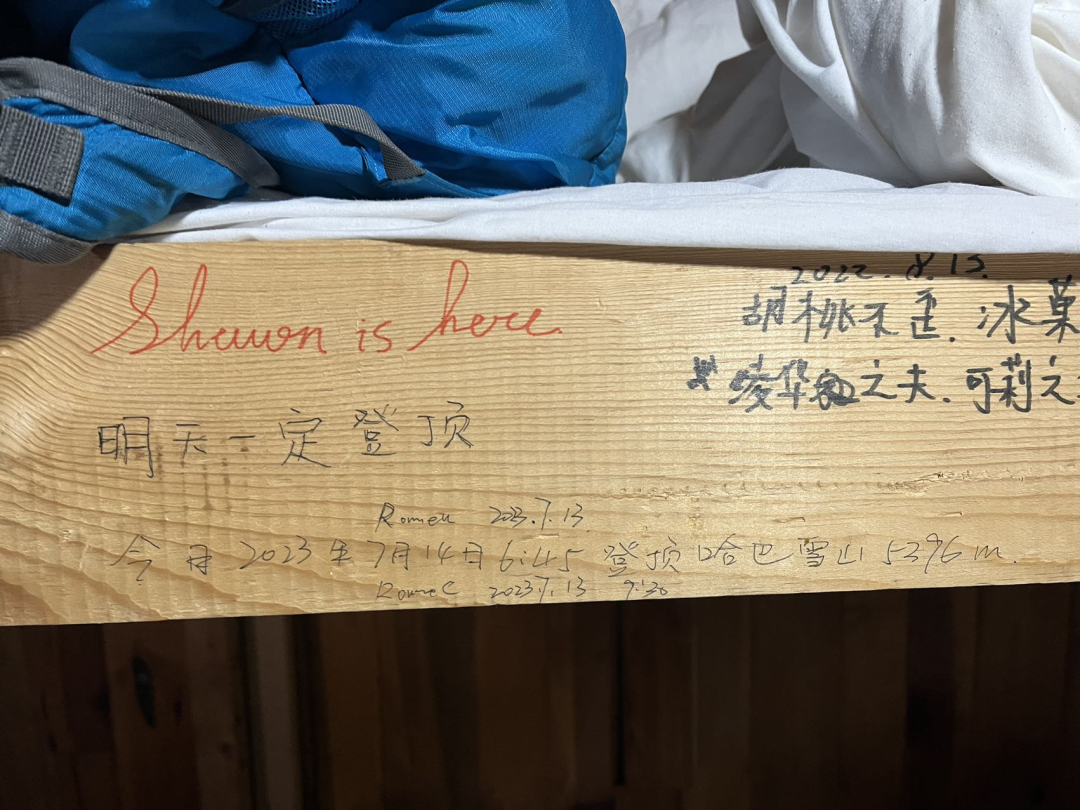 Shawon is here
2022.8.15.
胡桃不歪.冰菓
绫华之夫.可莉之
明天一定登顶
Romeu 2023.7.13.
今日2023年7月14日6:45登顶哈巴雪山5396m.
RomeC 2023.7.13 9:30